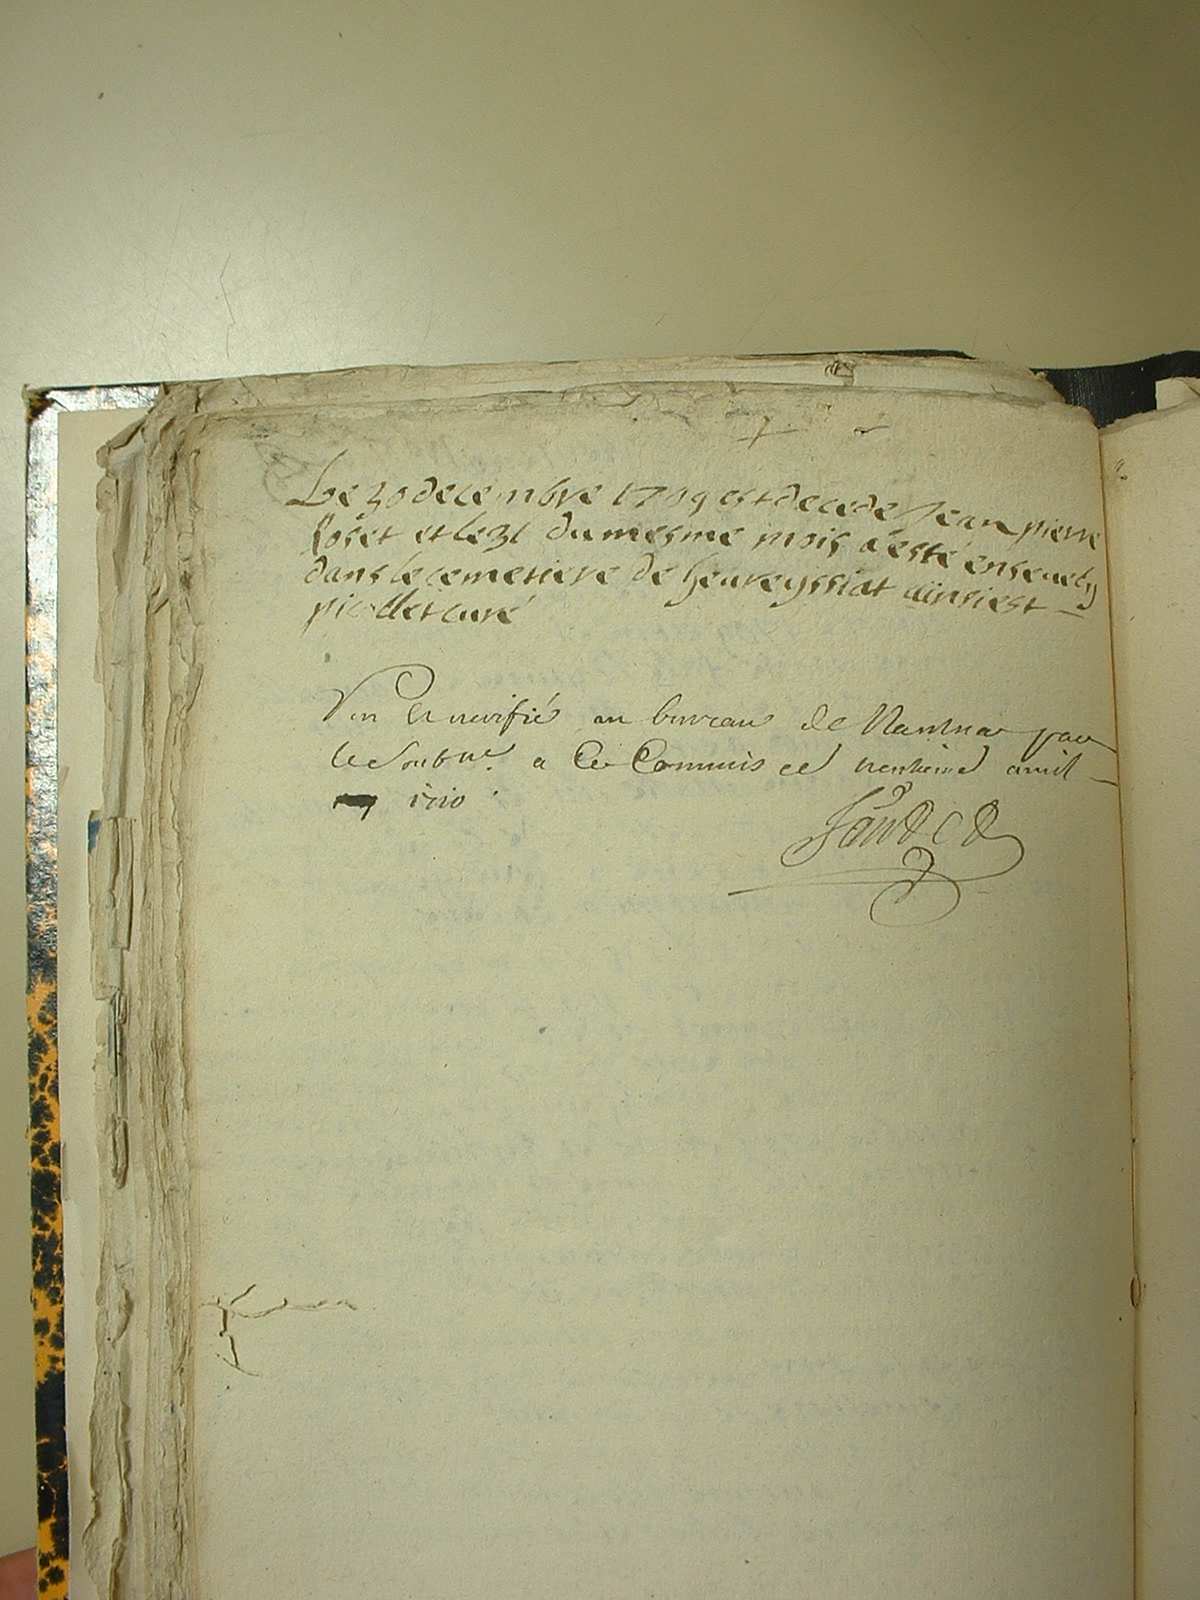 Le 30 decembre 1709 est decede Jean pierre
Roset et le 31 du mesme mois a esté ensevely
dans le cemetiere de heureyssiat ainsi est
picollet curé
Veu et verifié au bureau de Nantua par
le Soubne. a Ce Commis ce trentieme avril
1710